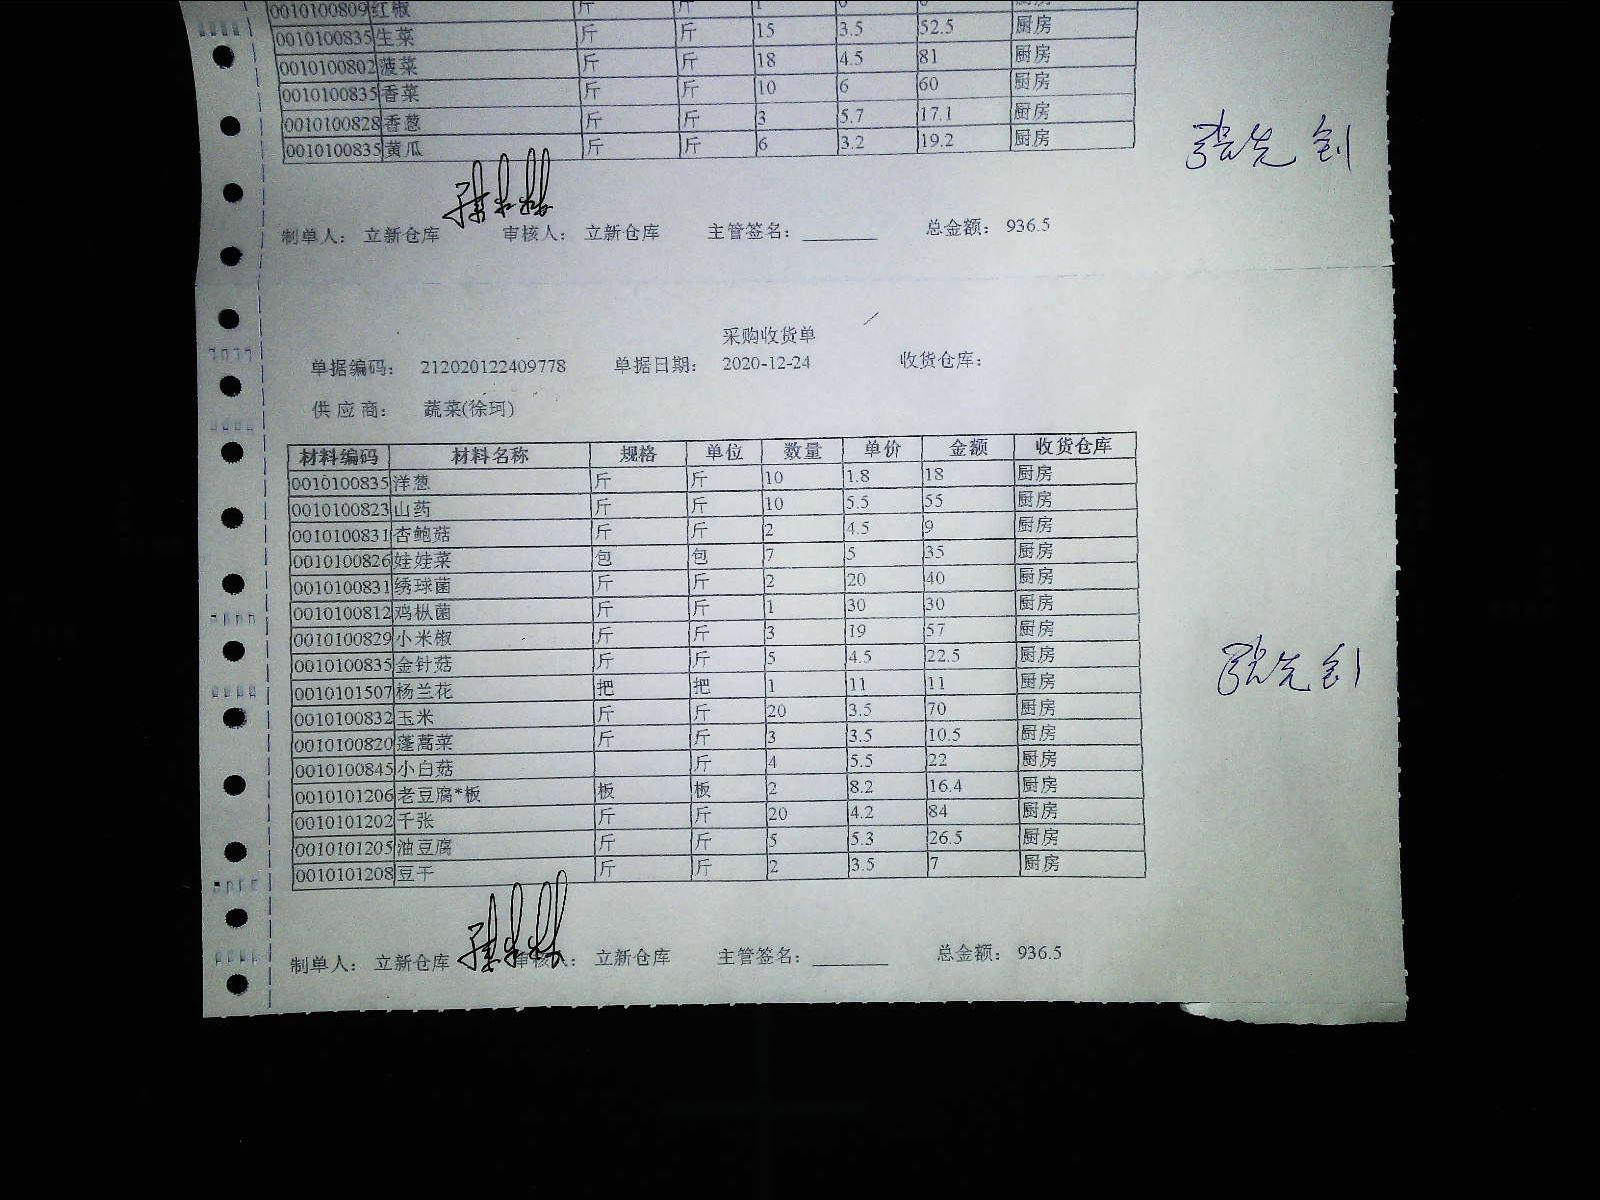 0010100809 红椒 斤 斤 1 6 6 厨房
0010100835 生菜 斤 斤 15 3.5 52.5 厨房
0010100802 菠菜 斤 斤 18 4.5 81 厨房
0010100835 香菜 斤 斤 10 6 60 厨房
0010100828 香葱 斤 斤 3 5.7 17.1 厨房
0010100835 黄瓜 斤 斤 6 3.2 19.2 厨房
制单人： 立新仓库 审核人： 立新仓库 主管签名： 总金额： 936.5
采购收货单
单据编码： 212020122409778 单据日期： 2020-12-24 收货仓库：
供应商： 蔬菜(徐珂)
材料编码 材料名称 规格 单位 数量 单价 金额 收货仓库
0010100835 洋葱 斤 斤 10 1.8 18 厨房
0010100823 山药 斤 斤 10 5.5 55 厨房
0010100831 杏鲍菇 斤 斤 2 4.5 9 厨房
0010100826 娃娃菜 包 包 7 5 35 厨房
0010100831 绣球菌 斤 斤 2 20 40 厨房
0010100812 鸡枞菌 斤 斤 1 30 30 厨房
0010100829 小米椒 斤 斤 3 19 57 厨房
0010100835 金针菇 斤 斤 5 4.5 22.5 厨房
0010101507 杨兰花 把 把 1 11 11 厨房
0010100832 玉米 斤 斤 20 3.5 70 厨房
0010100820 蓬蒿菜 斤 斤 3 3.5 10.5 厨房
0010100845 小白菇 斤 4 5.5 22 厨房
0010101206 老豆腐*板 板 板 2 8.2 16.4 厨房
0010101202 千张 斤 斤 20 4.2 84 厨房
0010101205 油豆腐 斤 斤 5 5.3 26.5 厨房
0010101208 豆干 斤 斤 2 3.5 7 厨房
制单人： 立新仓库 审核人： 立新仓库 主管签名： 总金额： 936.5